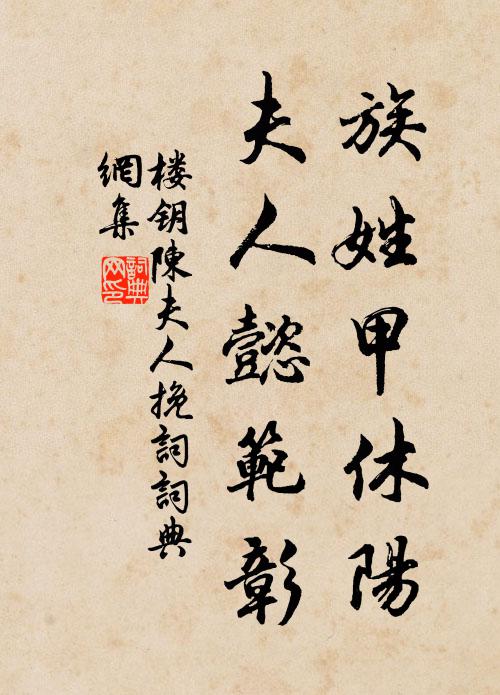 族姓甲休陽
夫人懿範彰
楼钥陳夫人挽詞詞典
網集
詞典網印